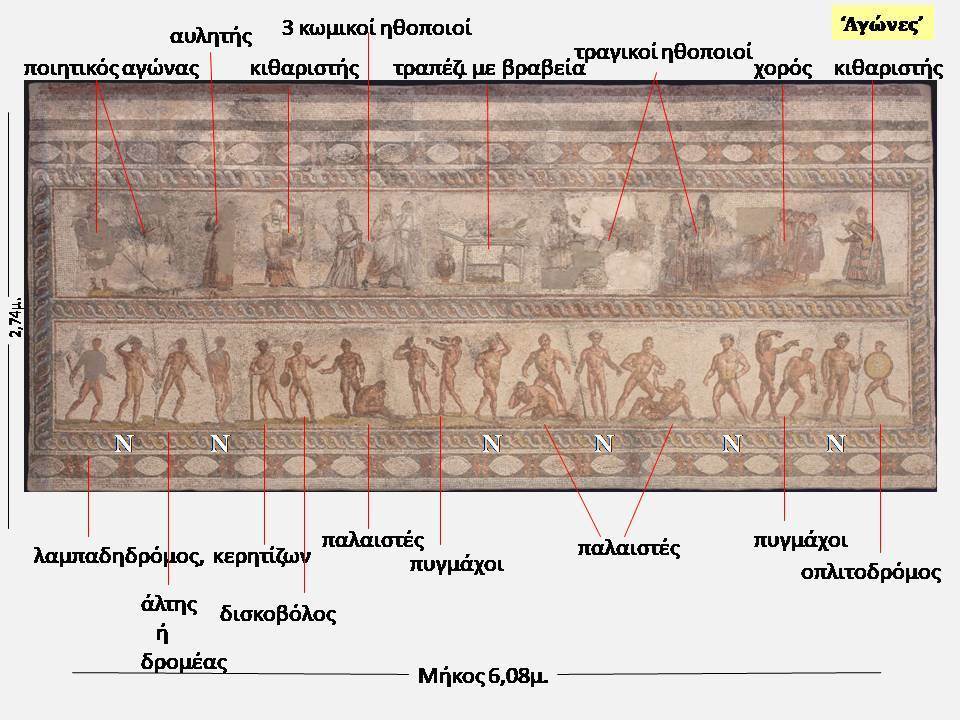 ‘Αγώνες’
αυλητής
3 κωμικοί ηθοποιοί
τραγικοί ηθοποιοί
ποιητικός αγώνας
κιθαριστής
τραπέζι με βραβεία
χορός
κιθαριστής
2,74μ.
N N N N N N
λαμπαδηδρόμος, κερητίζων
παλαιστές
πυγμάχοι
παλαιστές
πυγμάχοι
οπλιτοδρόμος
άλτης
ή
δρομέας
δισκοβόλος
Μήκος 6,08μ.